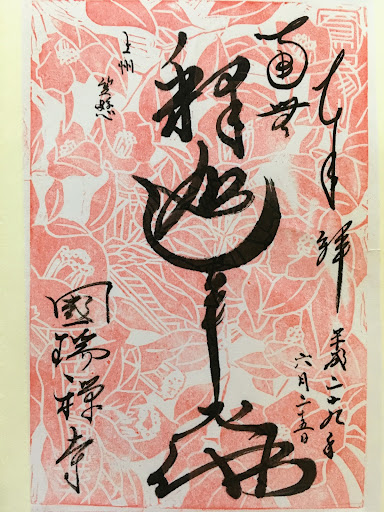 奉拝
平成二十九年
六月二十五日
南無
釋迦牟尼佛
上州
笠懸
國瑞禅寺